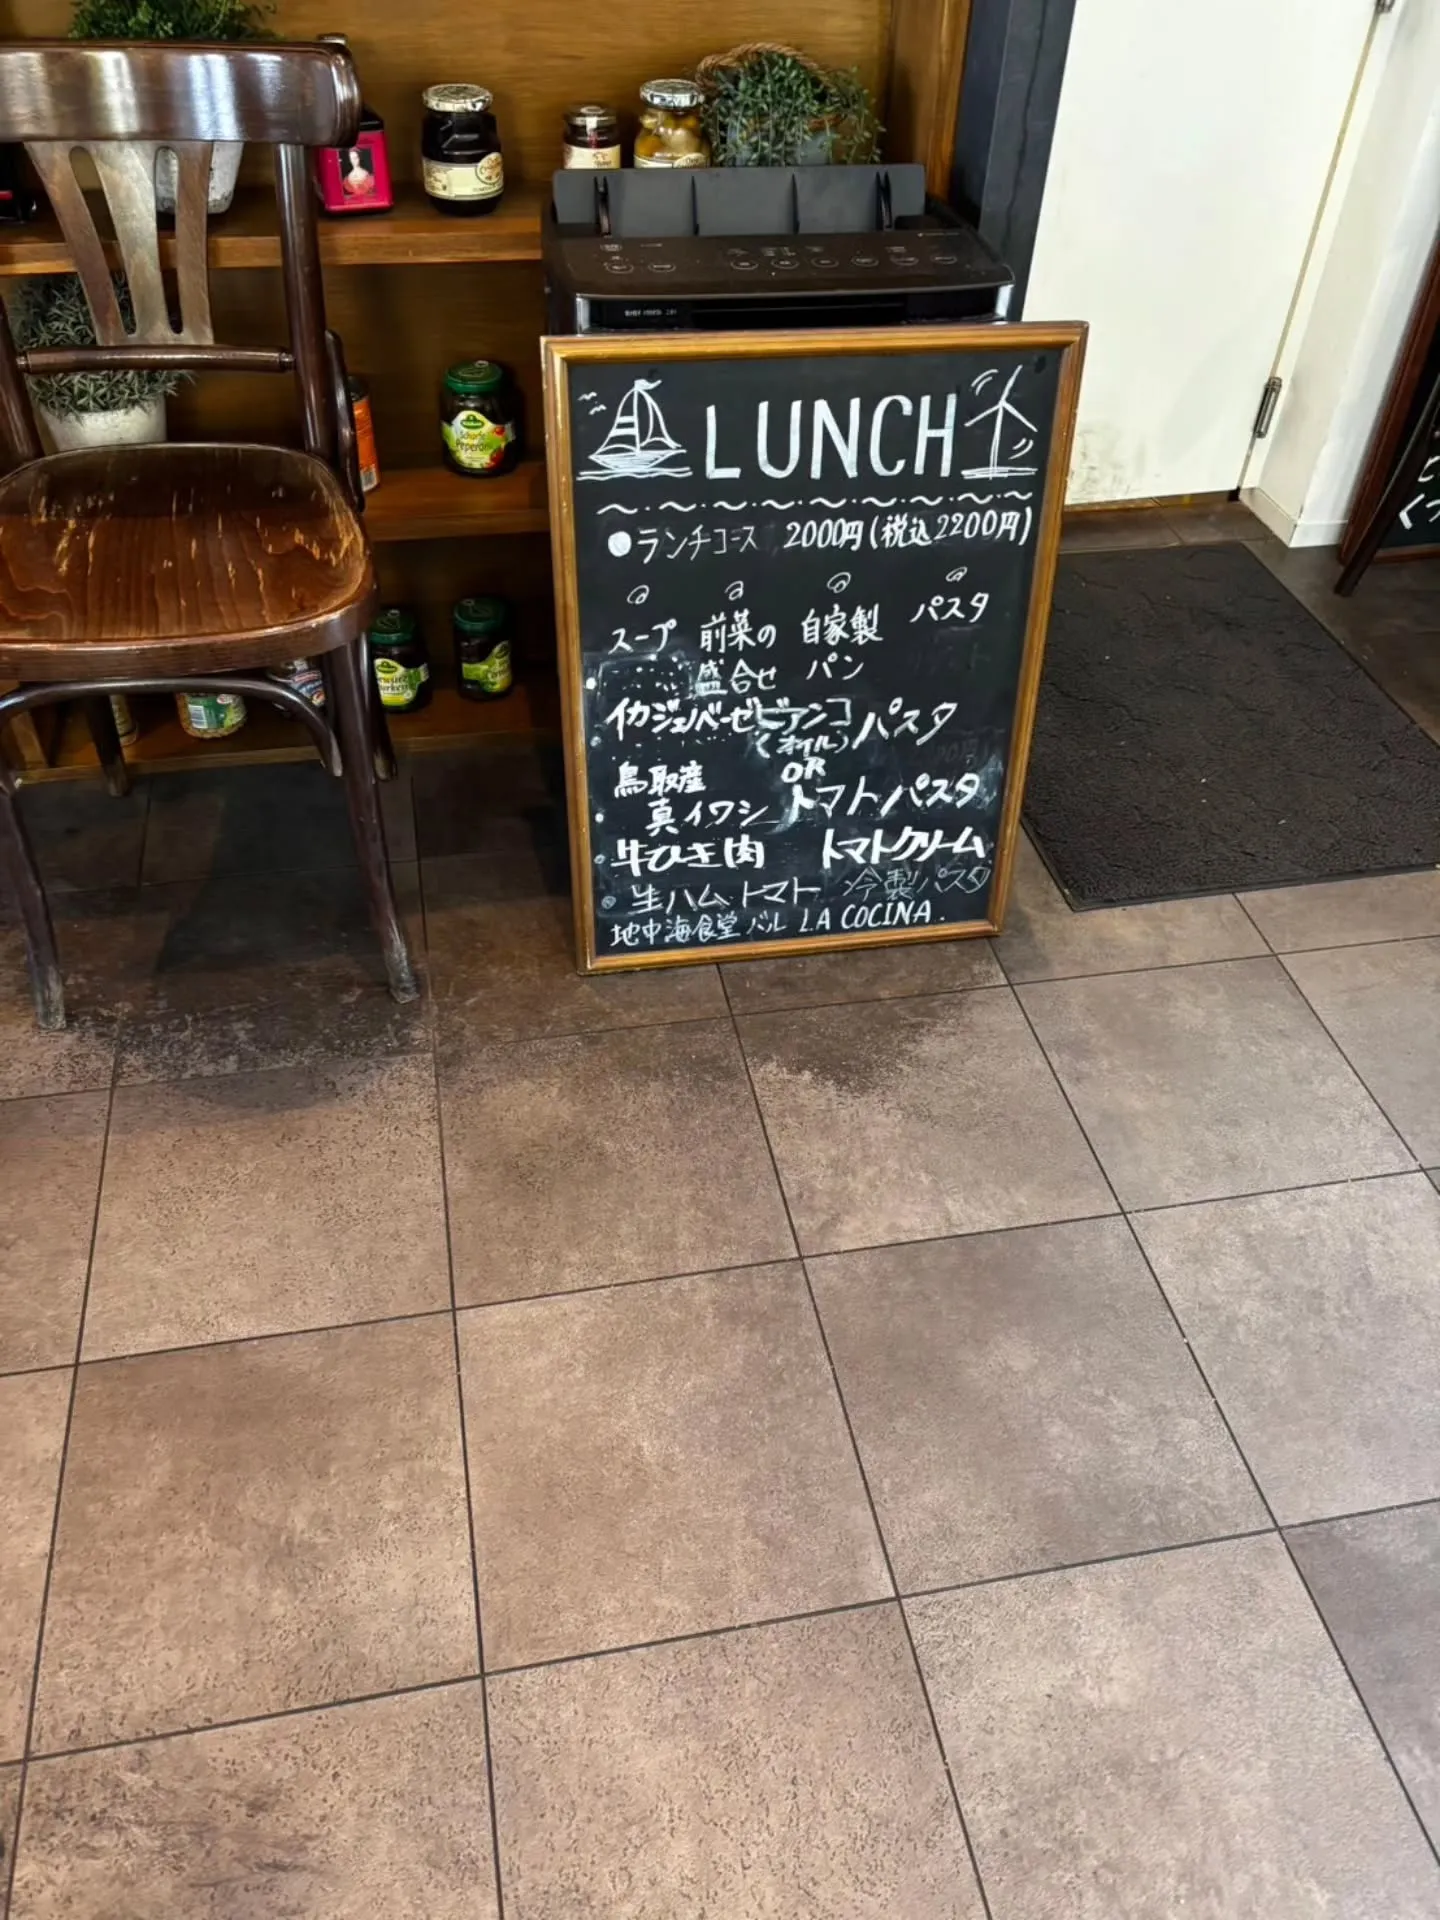 LUNCH
●ランチコース 2000円(税込2200円)
スープ 前菜の盛合せ 自家製パン パスタ
イカジェノベーゼビアンコ(オイル)パスタ
OR
鳥取産
真イワシ トマトパスタ
牛ひき肉 トマトクリーム
生ハム トマト 冷製パスタ
地中海食堂バル LA COCINA.
Kühne
Scharfe
Peperoni